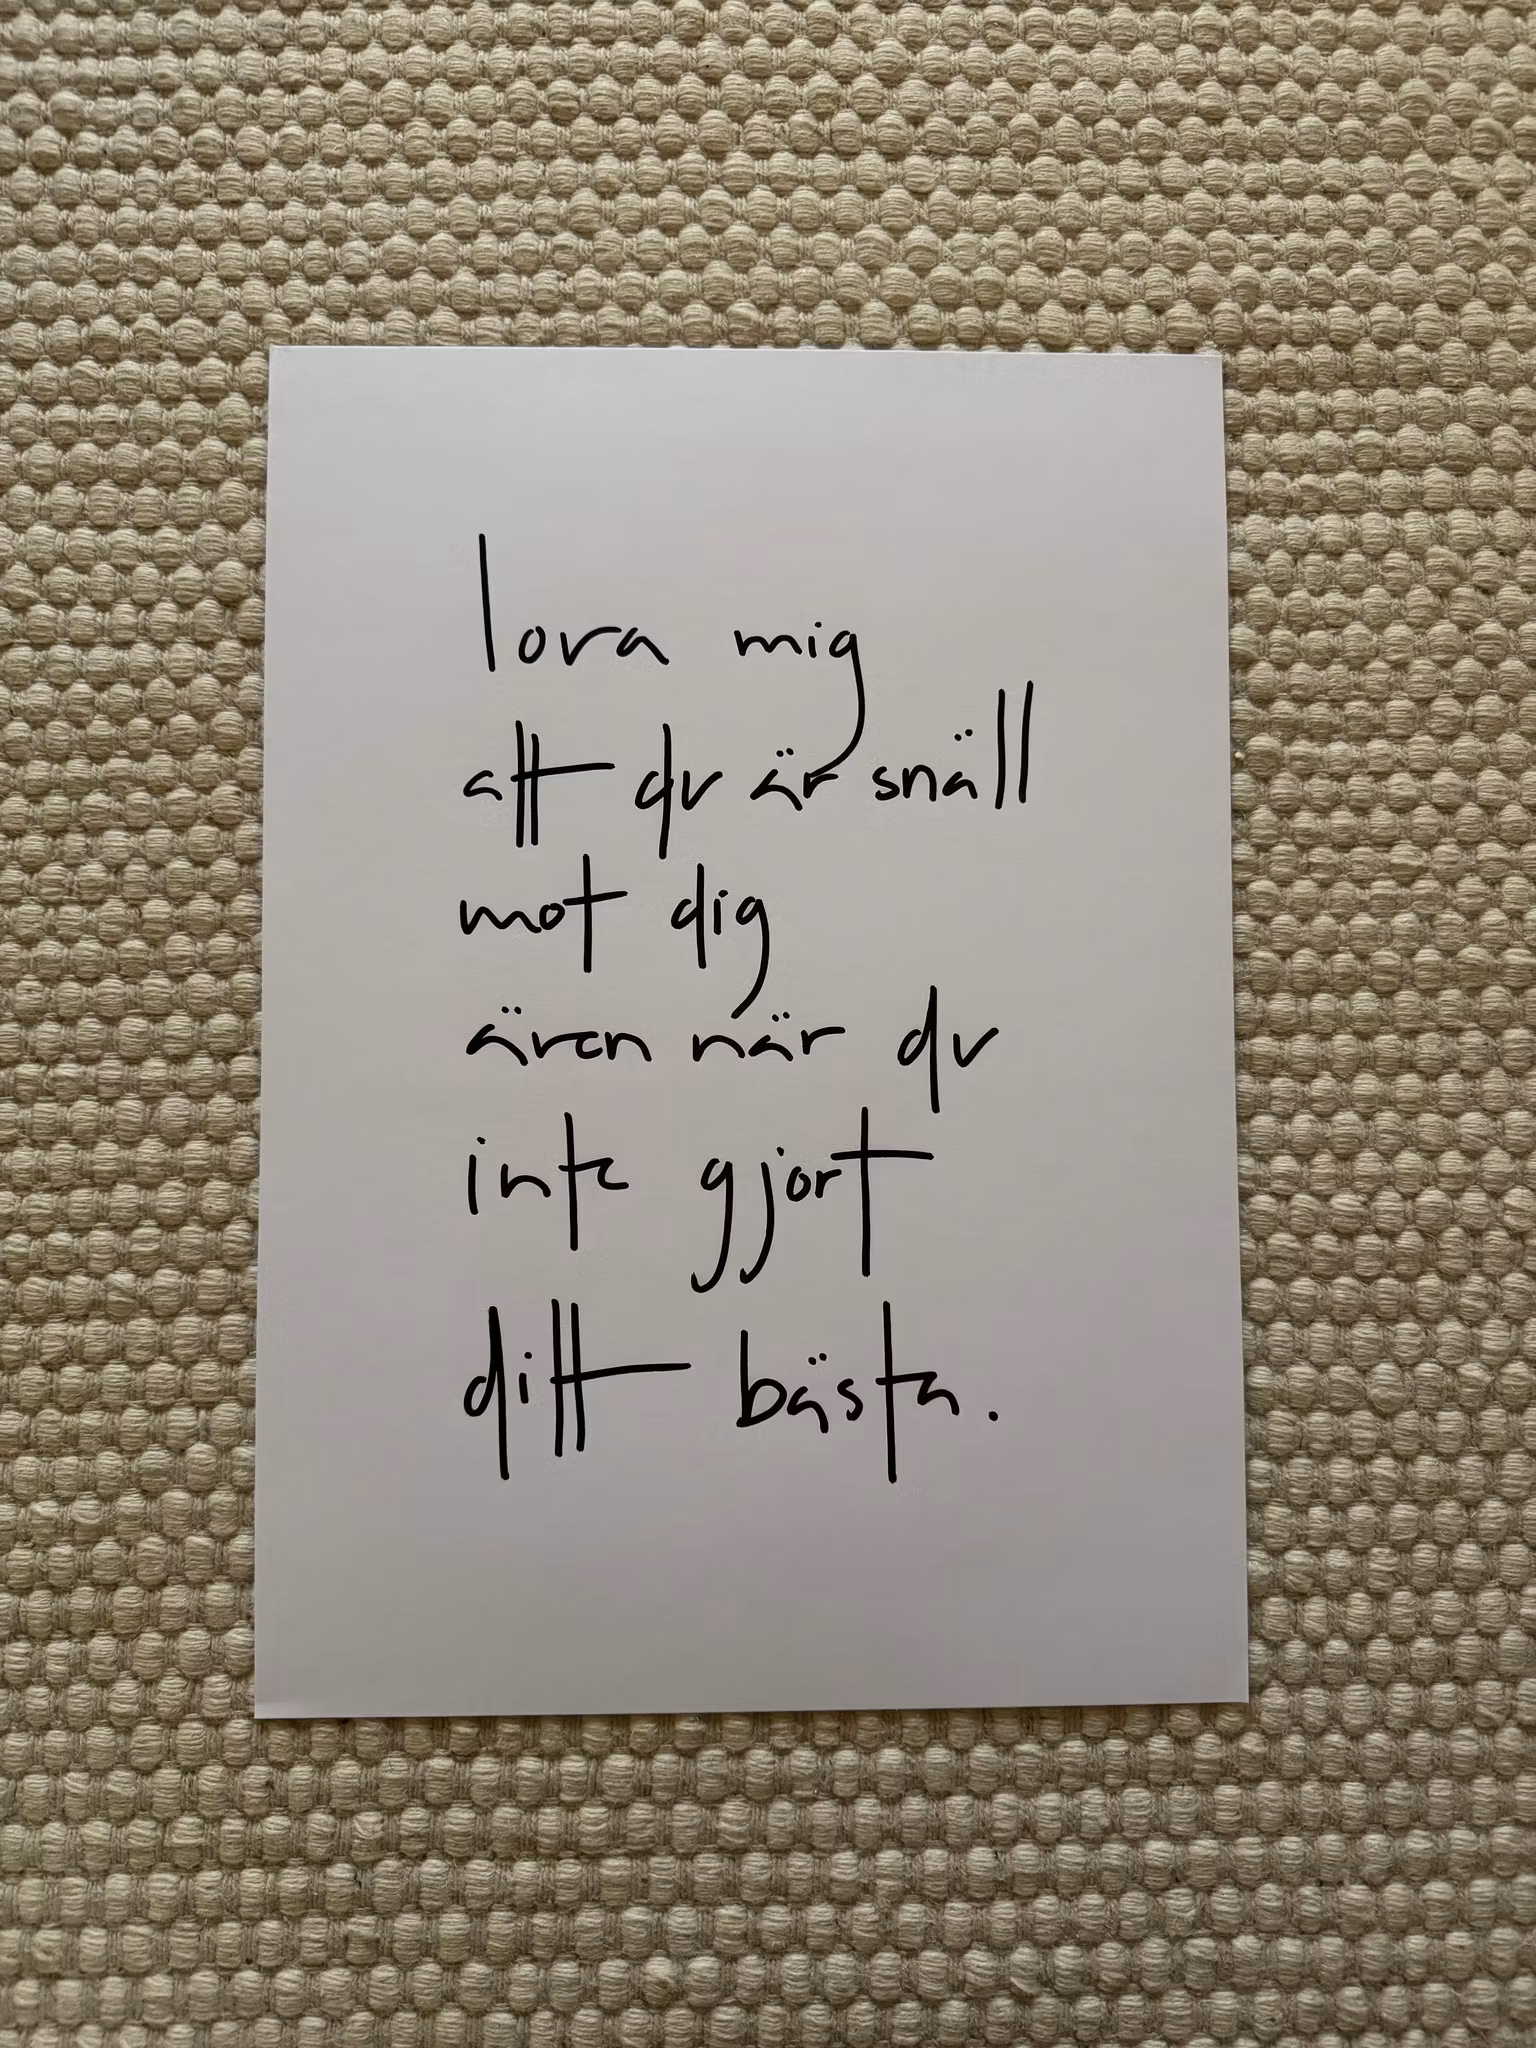 lova mig
att du är snäll
mot dig
även när du
inte gjort
ditt bästa.